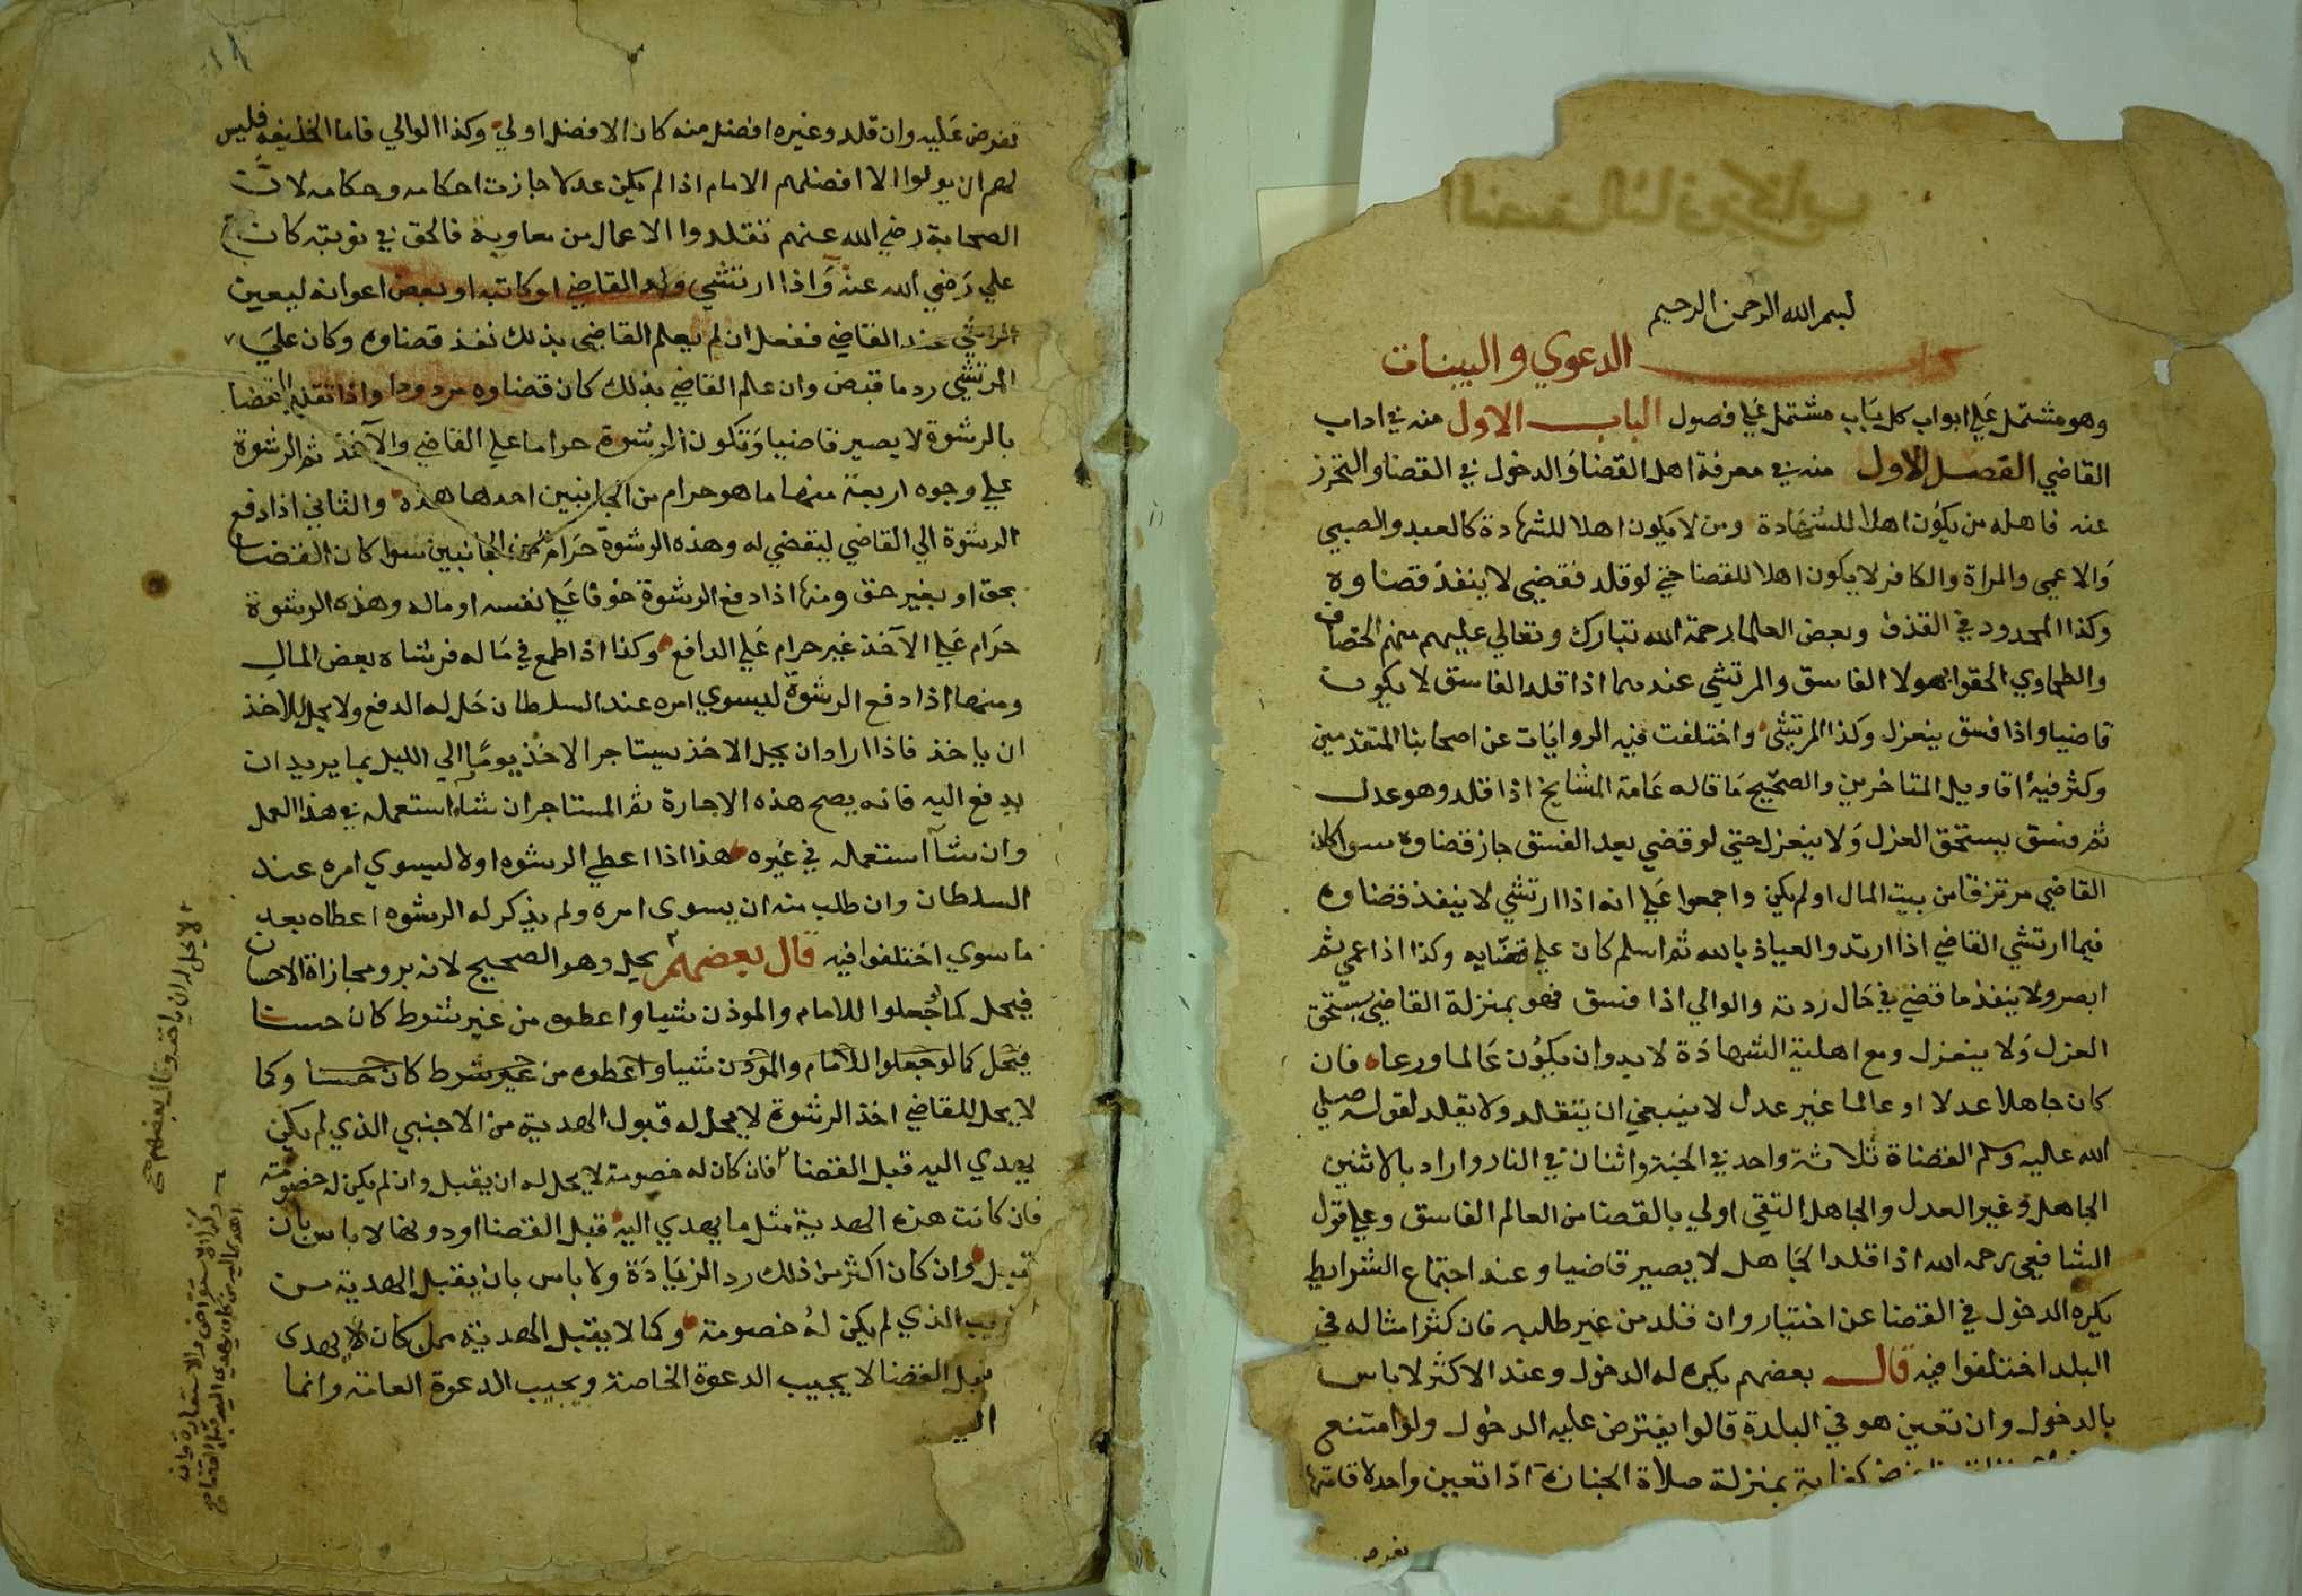 بسم الله الرحمن الرحيم
كتاب الدعوي والبينات
وهو مشتمل علي ابواب كل باب مشتمل علي فصول الباب الاول منه في اداب
القاضي الفصل الاول منه في معرفة اهل القضا والدخول في القضا والتحرز
عنه فاهله من يكون اهلا للشهادة ومن لا يكون اهلا للشهادة كالعبد والصبي
والاعمي والمراة والكافر لا يكون اهلا للقضا حتي لو قلد فقضي لا ينفذ قضاوه
وكذا المحدود في القذف وبعض العلما رحمة الله تبارك وتعالي عليهم منهم الخصاف
والطحاوي الحقوا بهولا الفاسق والمرتشي عندهما اذا قلد الفاسق لا يكون
قاضيا واذا فسق ينعزل وكذا المرتشي واختلفت فيه الروايات عن اصحابنا المتقدمين
وكثر فيه اقاويل المتاخرين والصحيح ما قاله عامة المشايخ اذا قلد وهو عدل
ثم فسق يستحق العزل ولا ينعزل حتي لو قضي بعد الفسق جاز قضاوه سوا كان
القاضي مرتزقا من بيت المال او لم يكن واجمعوا علي انه اذا ارتشي لا ينفذ قضاوه
فيما ارتشي القاضي اذا ارتد والعياذ بالله ثم اسلم كان علي قضايه وكذا اذا عمي ثم
ابصر ولا ينفذ ما قضي في حال ردته والوالي اذا فسق فهو بمنزلة القاضي يستحق
العزل ولا ينعزل ومع اهلية الشهادة لا بد وان يكون عالما ورعا فان
كان جاهلا عدلا او عالما غير عدل لا ينبغي ان يتقلد ولا يقلد لقوله صلي
الله عليه وسلم القضاة ثلاثة واحد في الجنة واثنان في النار واراد بالاثنين
الجاهل وغير العدل والجاهل التقي اولي بالقضا من العالم الفاسق وعلي قول
الشافعي رحمه الله اذا قلد الجاهل لا يصير قاضيا وعند اجتماع الشرايط
يكره الدخول في القضا عن اختيار وان قلد من غير طلبه فان كثر امثاله في
البلد اختلفوا فيه قال بعضهم يكره له الدخول وعند الاكثر لا باس
بالدخول وان تعين هو في البلدة قالوا يفترض عليه الدخول ولو امتنع
كفاية بمنزلة صلاة الجنازة اذا تعين واحد لاقامتها
تفرض
تفرض عليه وان قلد وغيره افضل منه كان الافضل اولي وكذا الوالي فاما الخليفة فليس
لهم ان يولوا الا افضلهم الامام اذا لم يكن عدلا جازت احكامه وحكامه لان
الصحابة رضي الله عنهم تقلدوا الاعمال من معاوية فالحق في نوبته كان مع
علي رضي الله عنه واذا ارتشي ولد القاضي او كاتبه او بعض اعوانه ليعين
الراشي عند القاضي ففعل ان لم يعلم القاضي بذلك نفذ قضاوه وكان علي
المرتشي رد ما قبض وان علم القاضي بذلك كان قضاوه مردودا واذا تقلد القضا
بالرشوة لا يصير قاضيا وتكون الرشوة حراما علي القاضي والآخذ ثم الرشوة
علي وجوه اربعة منها ما هو حرام من الجانبين احدها هذه والثاني اذا دفع
الرشوة الي القاضي ليقضي له وهذه الرشوة حرام من الجانبين سوا كان القضا
بحق او بغير حق ومنها اذا دفع الرشوة خوفا علي نفسه او ماله وهذه الرشوة
حرام علي الآخذ غير حرام علي الدافع وكذا اذا طمع في ماله فرشاه بعض المال
ومنها اذا دفع الرشوة ليسوي امره عند السلطان حل له الدفع ولا يحل للاخذ
ان ياخذ فاذا اراد ان يحل الاخذ يستاجر الاخذ يوما الي الليل بما يريد ان
يدفع اليه فانه يصح هذه الاجارة ثم المستاجر ان شآء استعمله في هذا العمل
وان شآء استعمله في غيره هذا اذا اعطي الرشوه اولا ليسوي امره عند
السلطان وان طلب منه ان يسوي امره ولم يذكر له الرشوه اعطاه بعد
ما سوي اختلفوا فيه قال بعضهم يحل وهو الصحيح لانه بر ومجازاة الاحسان
فيحل كما لو جعلوا للامام والموذن شيا واعطوه من غير شرط كان حسنا
فيحل كما لو جعلوا للامام والموذن شيا واعطوه من غير شرط كان حسنا وكما
لا يحل للقاضي اخذ الرشوة لا يحل له قبول الهدية من الاجنبي الذي لم يكن
يهدي اليه قبل القضا فان كان له خصومة لا يحل له ان يقبل وان لم يكن له خصومة
فان كانت هذه الهدية مثل ما يهدي اليه قبل القضا او دونها لا باس بان
قبل وان كان اكثر من ذلك رد الزيادة ولا باس بان يقبل الهدية من
قريب الذي لم يكن له خصومة وكما لا يقبل الهدية ممن كان لا يهدي
قبل القضا لا يجيب الدعوة الخاصة ويجيب الدعوة العامة وانما
لا يحل له ان ياخذ وقال بعضهم صح
وكذا الاستقراض والاستعارة وان